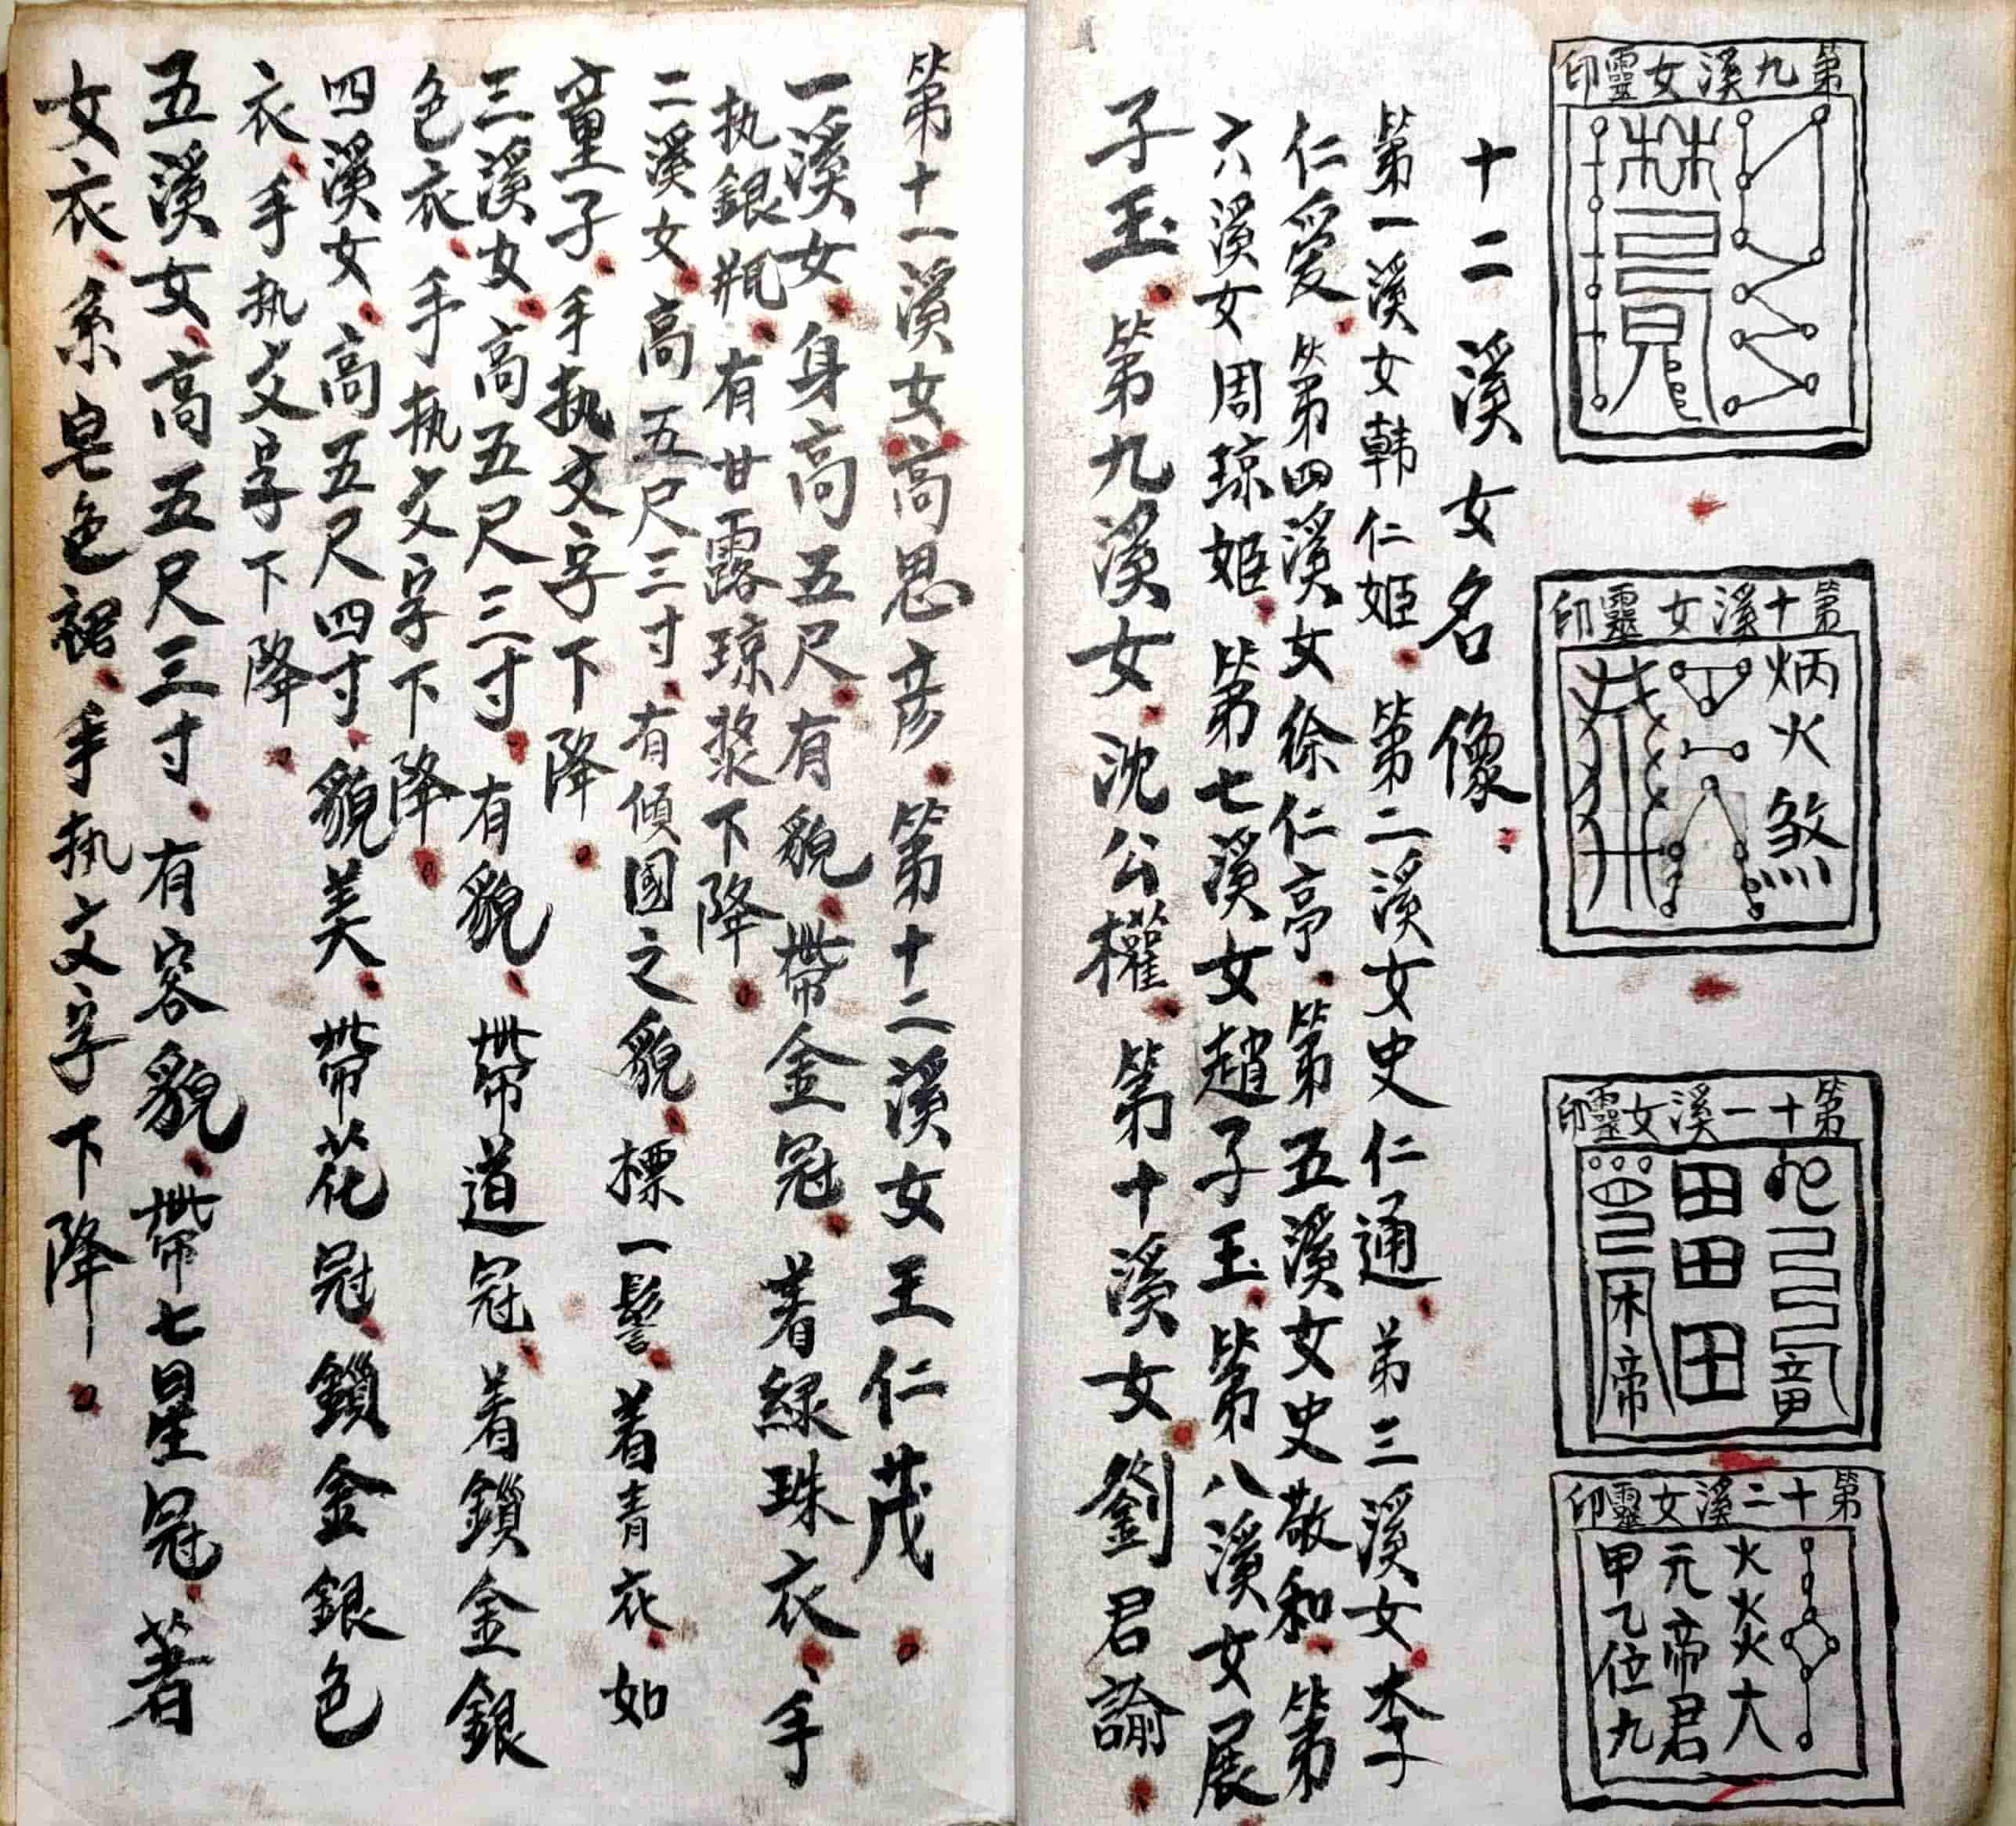 第九溪女靈印
第十溪女靈印
炳火煞
第十一溪女靈印
田田田
第十二溪女靈印
火炎炎大
元帝君
甲乙位九
十二溪女名像
第一溪女韩仁姬 第二溪女史仁通 弟三溪女李
仁爱 第四溪女徐仁亭 第五溪女史敬和 第
六溪女周琼姬 第七溪女趙子玉 第八溪女展
子玉 第九溪女沈公權 第十溪女劉君諭
第十一溪女高思彦 第十二溪女王仁茂
一溪女身高五尺有貌帶金冠 著緑珠衣手
执銀瓶有甘露琼漿下降
二溪女高五尺三寸有傾國之貌標一髻着青衣如
童子手执文字下降
三溪女高五尺三寸有貌帶道冠着鎖金銀
色衣手执文字下降
四溪女高五尺四寸貌美帶花冠鎖金銀色
衣手执文字下降
五溪女高五尺三寸有容貌帶七星冠著
女衣系皂色裙手执文字下降